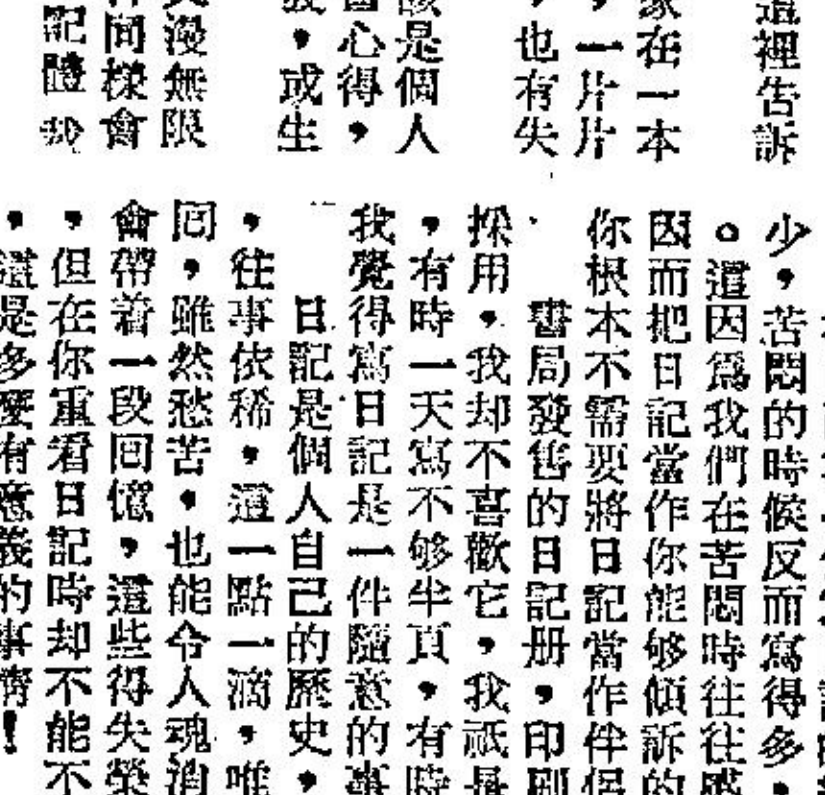 這裡告訴
家在一本
，一片片
，也有失
該是個人
心得，
，或生
漫無限
件間樣會
記體
少，苦悶的時候反而寫得多，
。這因為我們在苦悶時往往感
因而把日記當作你能够傾訴的
你根本不需要將日記當作伴侶
書局發售的日記册，印刷
採用，我却不喜歡它，我祇是
，有時一天寫不够半頁，有時
我覺得寫日記是一件隨意的事
日記是個人自己的歷史，
，往事依稀，這一點一滴，唯
囘，雖然愁苦，也能令人魂消
會帶着一段囘憶，這些得失榮
，但在你重看日記時却不能不
，這是多麼有意義的事情！